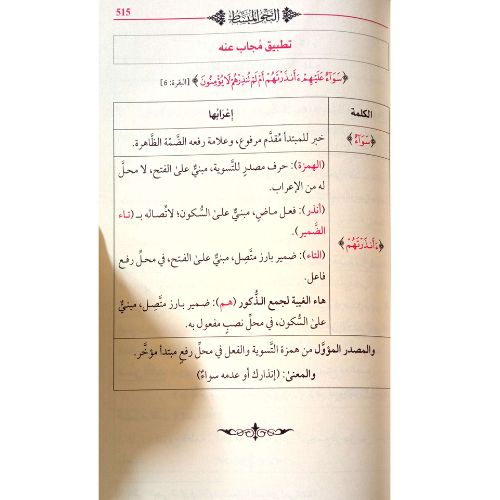 515
النحو المبسط
تطبيق مُجاب عنه
﴿سَوَآءٌ عَلَيْهِمْ ءَأَنذَرْتَهُمْ أَمْ لَمْ تُنذِرْهُمْ لَا يُؤْمِنُونَ﴾ [البقرة: 6]
الكلمة إعْرَابُها
﴿سَوَآءٌ﴾ خبر للمبتدأ مُقدَّم مرفوع، وعلامة رفعه الضَّمَّة الظَّاهرة.
(الهمزة): حرف مصدرٍ للتَّسوية، مبنيٌّ علىٰ الفتح، لا محلَّ
له من الإعراب.
(أنذر): فعـل مـاضٍ، مبنيٌّ علىٰ السُّكون؛ لاتِّصاله بـ (تـاء
الضَّمير).
﴿ءَأَنذَرْتَهُمْ﴾
(التاء): ضمير بارز متَّصل، مبنيٌّ علىٰ الفتـح، في محلِّ رفـع
فاعل.
هاء الغيبة لجمع الذُّكور (هـم): ضمير بـارز متَّصِل، مبنيٌّ
علىٰ السُّكون، في محلِّ نصبٍ مفعول به.
والمصدر المؤوَّل من همزة التَّسوية والفعل في محلِّ رفعٍ مبتدأ مؤخَّر.
والمعنىٰ: (إنذارك أو عدمه سواءٌ)